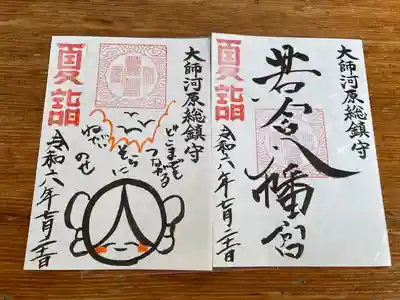 大師河原総鎮守
若宮八幡宮
夏詣
令和六年七月
大師河原総鎮守
どこまでも
つながる
そらに
ねがい
のせ
夏詣
令和六年七月